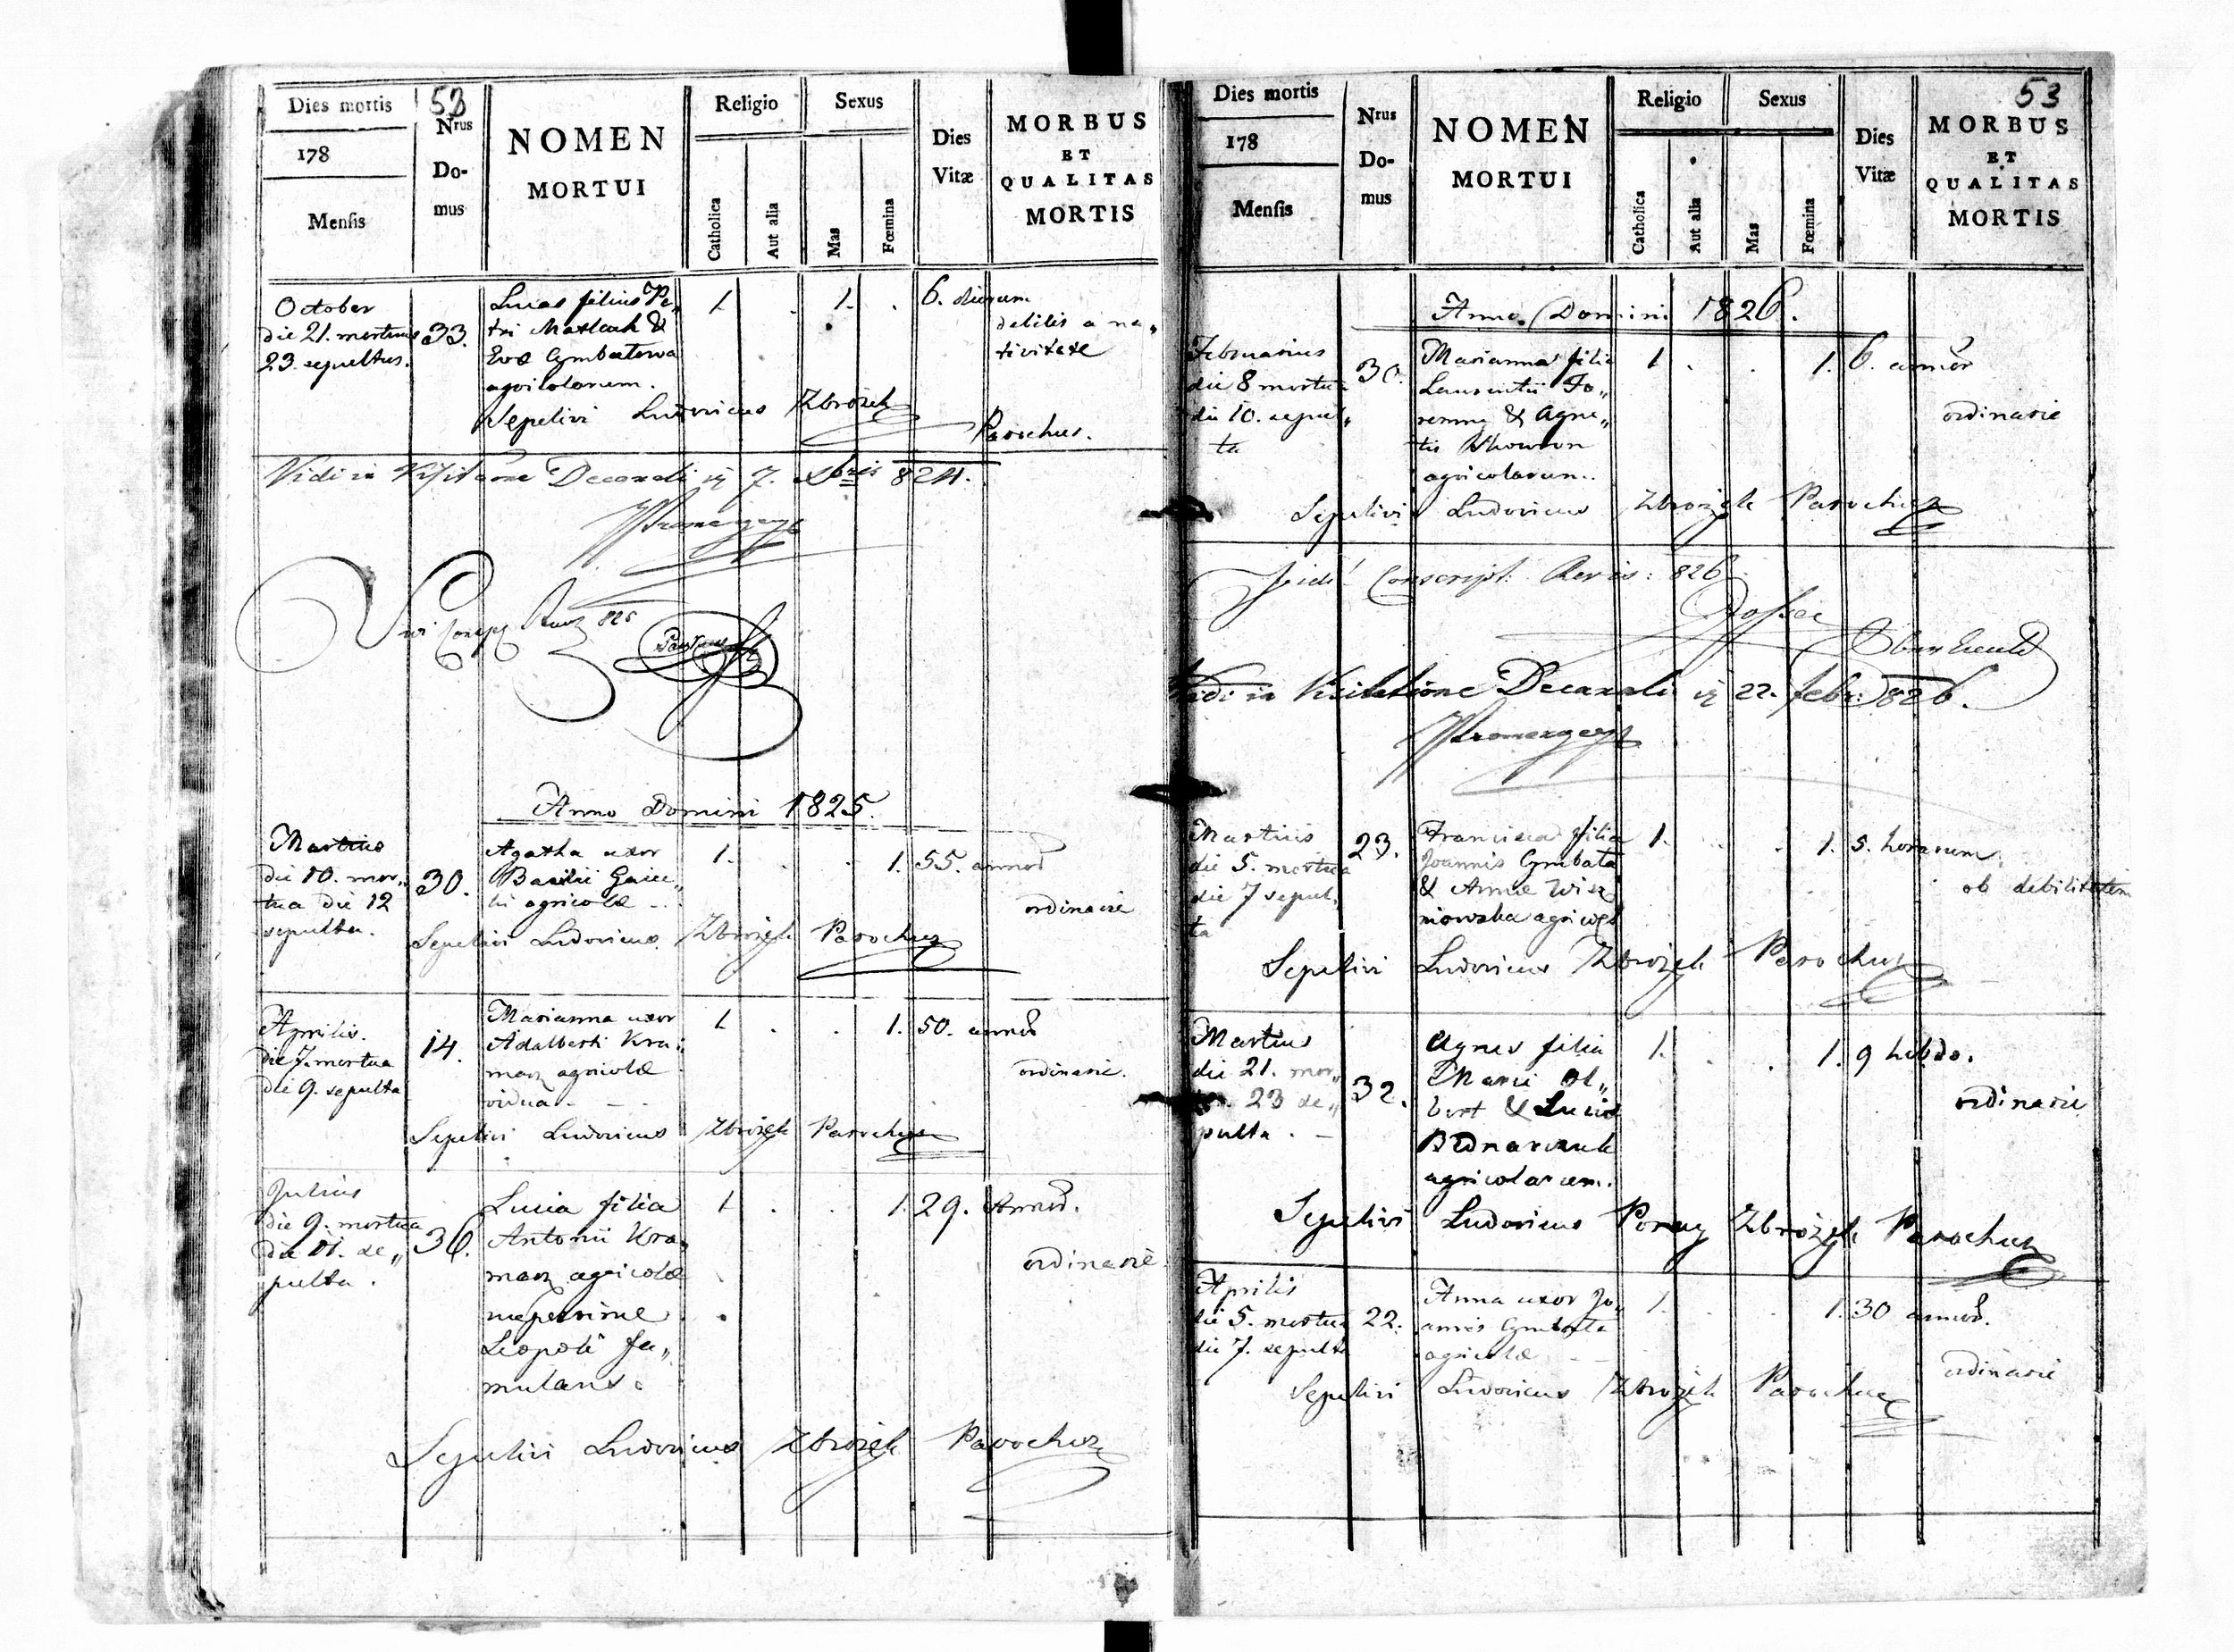 Dies mortis
178
Mensis
52
Nrus
Do-
mus
NOMEN
MORTUI
Religio
Catholica
Aut alia
Sexus
Mas
Fœmina
Dies
Vitæ
MORBUS
ET
QUALITAS
MORTIS
October
die 21. mortuus
23. sepultus.
33.
Lucas filius Pe„
tri Matlach &
Evæ Cymbatowa
agricolarum.
1
1.
6. dierum
debilis a na„
tivitate
Sepelivi Ludovicus Zbrożek
Parochus.
Vidi in Visitaone Decanali 7. Xbris 824.
Anno Domini 1825.
Martius
die 10. mor„
tua die 12
sepulta.
30.
Agatha uxor
Basilii
agricolæ
1.
1.
55. annor
ordinarie
Sepelivi Ludovicus Zbrożek Parochus
Aprilis.
die 7. mortua
die 9. sepulta
14.
Marianna uxor
Adalberti Kra„
marz agricolæ
vidua.
1
1.
50. annor
ordinarie.
Sepelivi Ludovicus Zbrożek Parochus
Julius
die 9. mortua
die 11. se„
pulta.
36.
Lucia filia
Antonii Kra„
marz agricolæ
Leopoli fa„
mulans.
1
1.
29. Annor.
ordinarie
Sepelivi Ludovicus Zbrożek Parochus
Dies mortis
178
Mensis
Nrus
Do-
mus
NOMEN
MORTUI
Religio
Catholica
Aut alia
Sexus
Mas
Fœmina
Dies
Vitæ
53
MORBUS
ET
QUALITAS
MORTIS
Anno Domini 1826.
Februarius
die 8 mortua
die 10. sepul„
ta
30.
Marianna filia
Laurentii
& Agne„
tis
agricolarum.
1
1.
6. annor
ordinarie
Sepelivi Ludovicus Zbrożek Parochus
Vidi Conscript. Revis: 826
Vidi in Visitatione Decanali 22. febr: 826.
Martius
die 5. mortua
die 7 sepul„
ta
23.
Francisca filia
Joannis Cymbata
& Annæ Wisz
niowska agricol
1.
1.
5. horarum.
ob debilitatem
Sepelivi Ludovicus Zbrożek Parochus
Martius
die 21. mor„
23 se„
pulta.
32.
Agnes filia
Marci Ol„
bert & Luciæ
Bednarczuk
agricolarum.
1.
1.
9 hebdo.
ordinarie
Sepelivi Ludovicus Poray Zbrożek Parochus
Aprilis
die 5. mortua
die 7. sepulta
22.
Anna uxor Jo„
annis Cymbata
agricolæ
1.
1.
30 annor.
ordinarie
Sepelivi Ludovicus Zbrożek Parochus